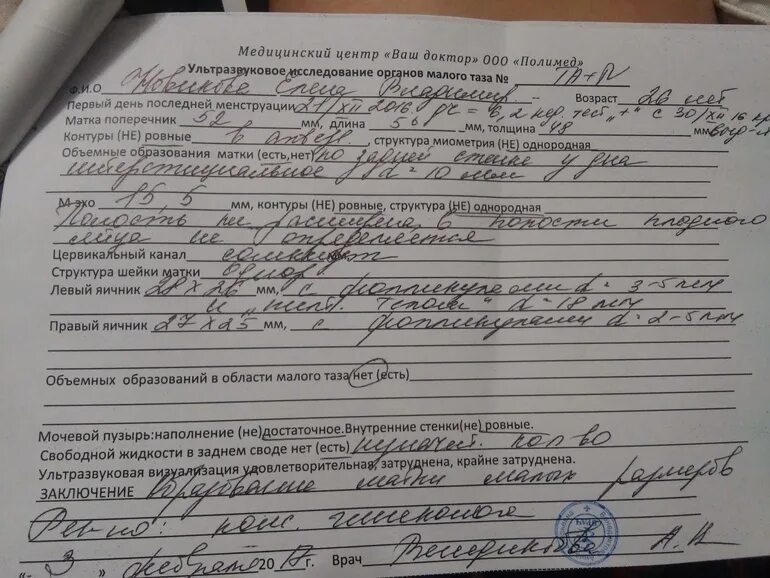 Медицинский центр «Ваш доктор» ООО «Полимед»
Ультразвуковое исследование органов малого таза № ТА+
Ф.И.О Новикова Елена Владимир Возраст 26 лет
Первый день последней менструации 21/XII 2016 = 6, 2 нед. тест „+" с 30/XII 16
Матка поперечник 52 мм, длина 56 мм, толщина 48 мм
Контуры (НЕ) ровные в , структура миометрия (НЕ) однородная
Объемные образования матки (есть,нет) по задней стенке у дна
интерстициальное d = 10 мм
М эхо 15,5 мм, контуры (НЕ) ровные, структура (НЕ) однородная
Полость не расширена, в полости плодного
яйца не определяется
Цервикальный канал сомкнут
Структура шейки матки однор
Левый яичник 28 х 26 мм, с фолликулами d = 3-5 мм
и „желт. телом" d = 18 мм
Правый яичник 27 х 25 мм, с фолликулами d = 2-5 мм
Объемных образований в области малого таза нет (есть)
Мочевой пузырь:наполнение (не)достаточное.Внутренние стенки(не) ровные.
Свободной жидкости в заднем своде нет (есть) незначит. кол-во
Ультразвуковая визуализация удовлетворительная, затруднена, крайне затруднена.
ЗАКЛЮЧЕНИЕ Образование матки малых размеров
Рек-но: конс гинеколога
"- 3 » февраля 2017 г. Врач А.Н